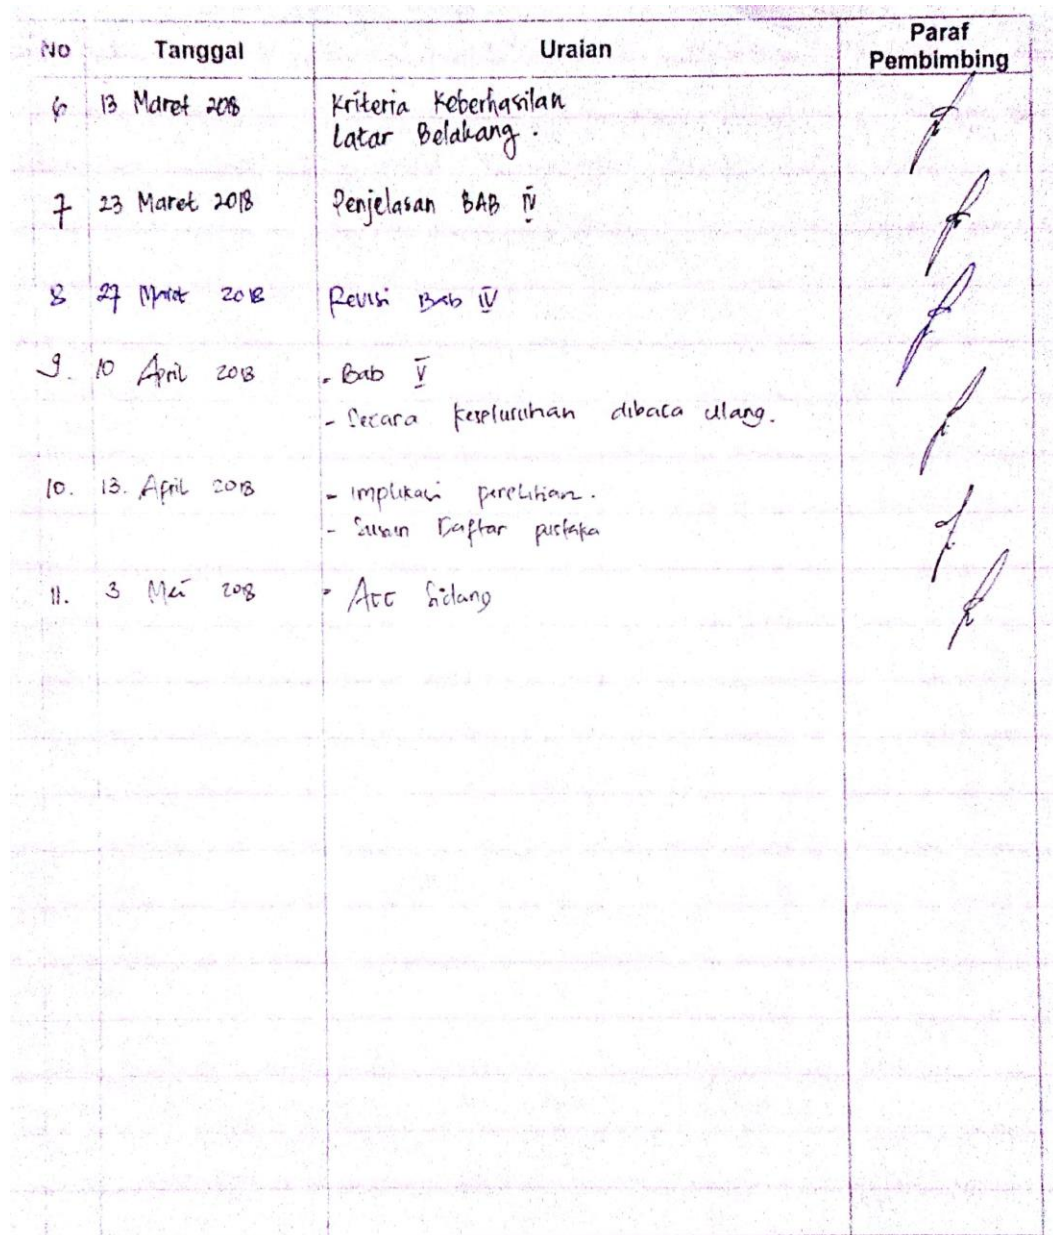 No Tanggal Uraian Paraf Pembimbing
6 13 Maret 2018 Kriteria Keberhasilan
Latar Belakang.
7 23 Maret 2018 Penjelasan BAB IV
8 27 Maret 2018 Revisi Bab IV
9. 10 April 2018 - Bab V
- Secara keseluruhan dibaca ulang.
10. 13. April 2018 - Implikasi penelitian.
- Susun Daftar pustaka
11. 3 Mei 2018 - Acc Sidang